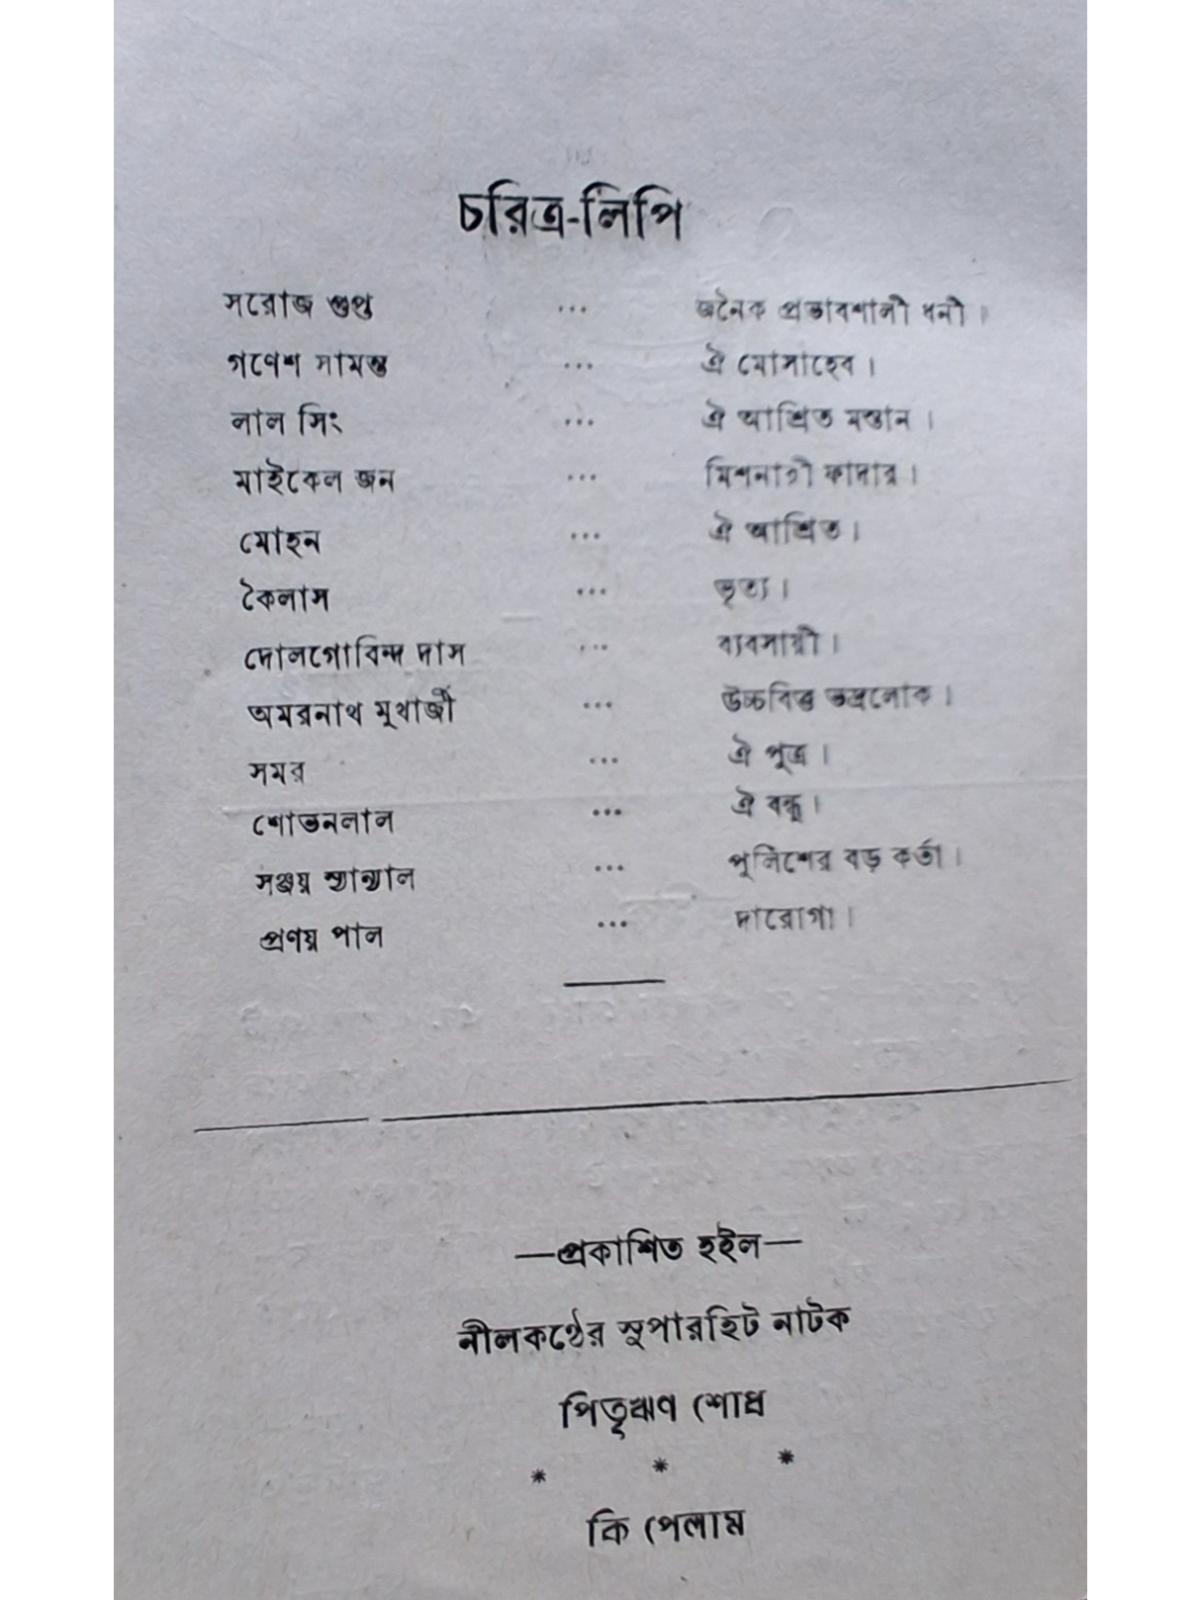 চরিত্র-লিপি
সরোজ গুপ্ত ... জনৈক প্রভাবশালী ধনী।
গণেশ সামন্ত ... ঐ মোসাহেব।
লাল সিং ... ঐ আশ্রিত মস্তান।
মাইকেল জন ... মিশনারী ফাদার।
মোহন ... ঐ আশ্রিত।
কৈলাস ... ভৃত্য।
দোলগোবিন্দ দাস ... ব্যবসায়ী।
অমরনাথ মুখার্জী ... উচ্চবিত্ত ভদ্রলোক।
সমর ... ঐ পুত্র।
শোভনলাল ... ঐ বন্ধু।
সঞ্জয় স্যান্যাল ... পুলিশের বড় কর্তা।
প্রণয় পাল ... দারোগা।
—প্রকাশিত হইল—
নীলকণ্ঠের সুপারহিট নাটক
পিতৃঋণ শোধ
* * *
কি পেলাম